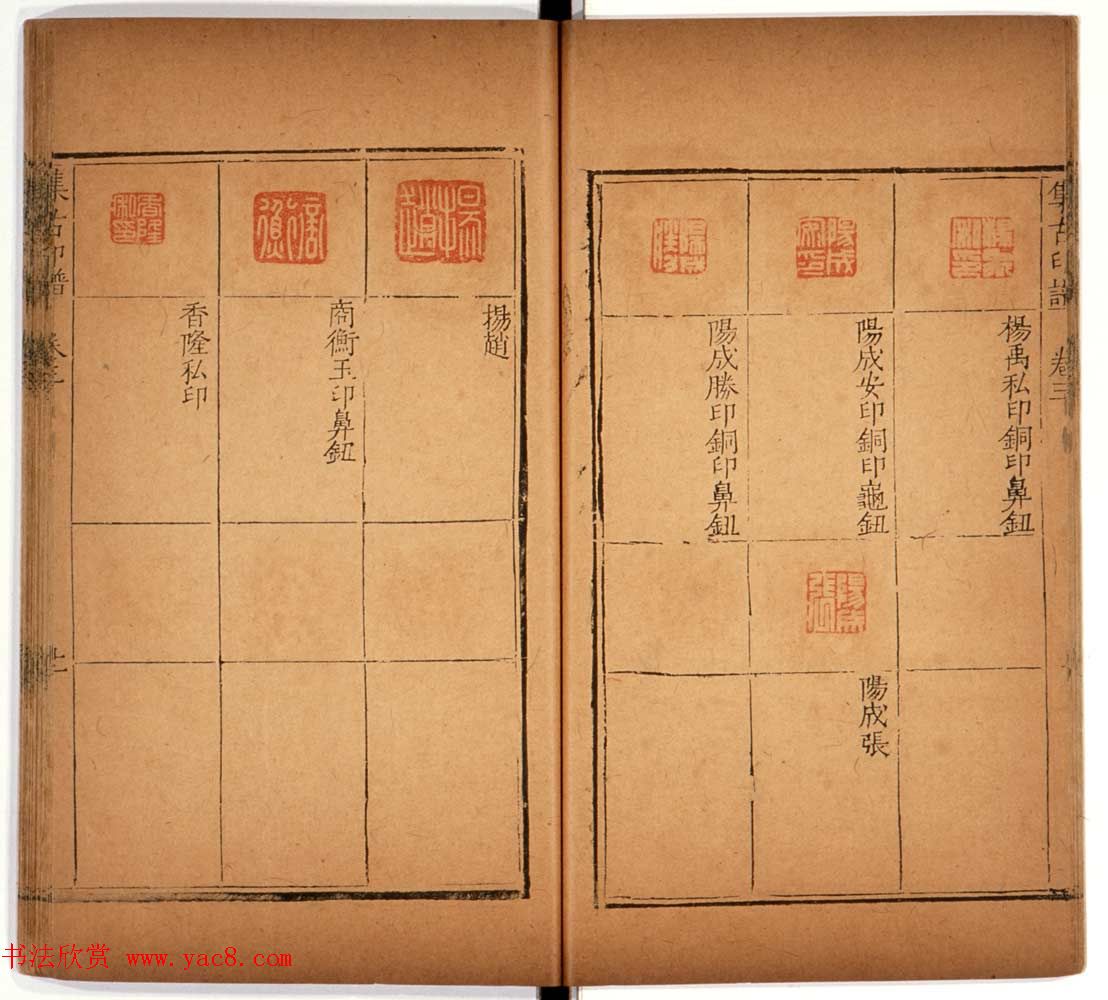 集古印譜 卷三
楊禹私印銅印鼻鈕
陽成安印銅印龜鈕
陽成張
陽成勝印銅印鼻鈕
揚趙
商衡玉印鼻鈕
香隆私印
香隆私印
集古印譜 卷三
书法欣赏 www.yac8.com